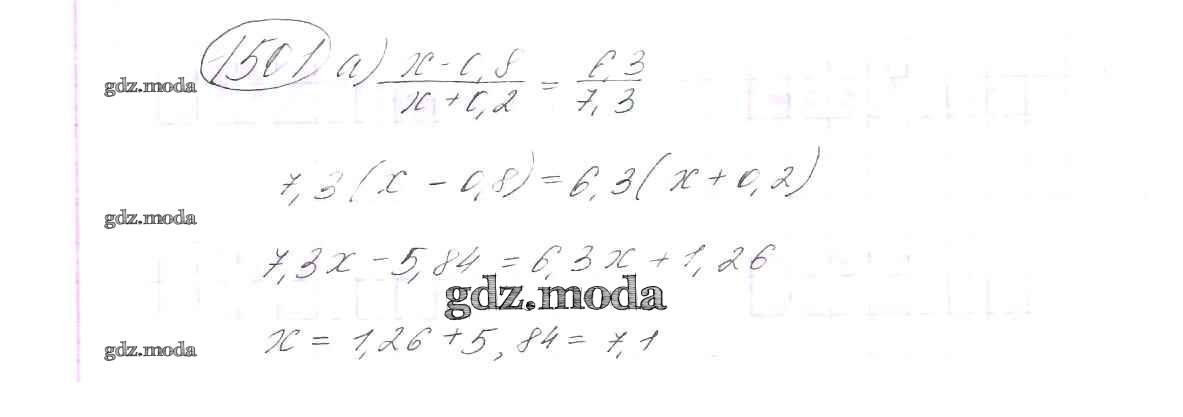 1501 а) x - 0,8 / x + 0,2 = 6,3 / 7,3
gdz.moda
7,3(x - 0,8) = 6,3(x + 0,2)
gdz.moda
7,3x - 5,84 = 6,3x + 1,26
gdz.moda
x = 1,26 + 5,84 = 7,1
gdz.moda